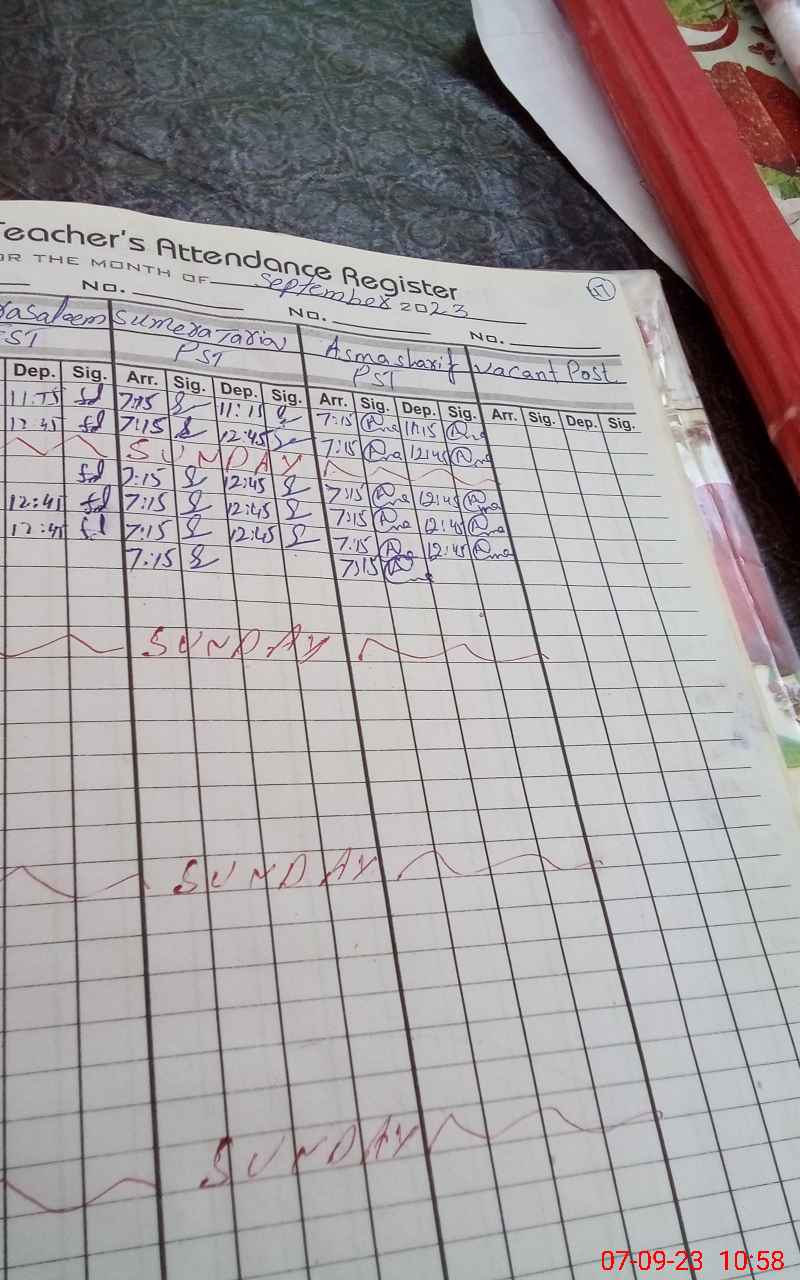 Teacher's Attendance Register
OR THE MONTH OF September 2023
17
NO. NO. NO.
rasaleem Sumera Taria Asma sharif Vacant Post
PST PST PST
Dep. Sig. Arr. Sig. Dep. Sig. Arr. Sig. Dep. Sig. Arr. Sig. Dep. Sig.
11:15 7:15 11:15 7:15 11:15
12:45 7:15 12:45 7:15 12:45
SUNDAY
7:15 12:45 7:15 12:45
12:45 7:15 12:45 7:15 12:45
12:45 7:15 12:45 7:15 12:45
7:15 7:15
SUNDAY
SUNDAY
SUNDAY
07-09-23 10:58